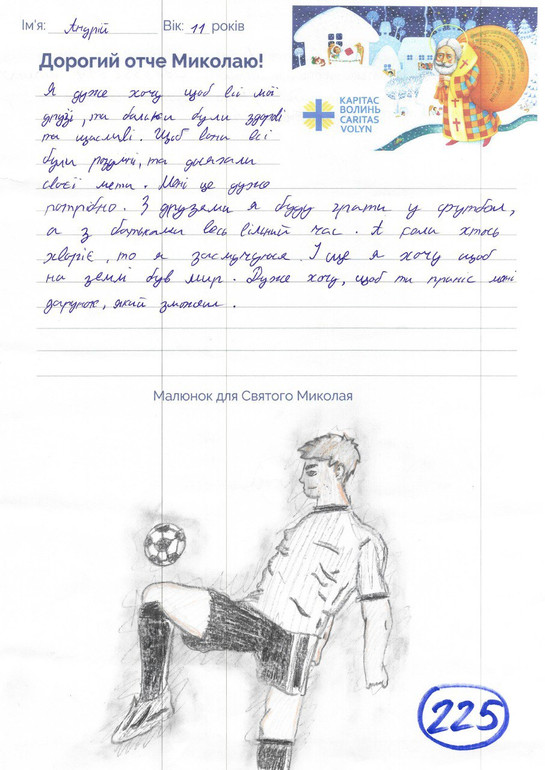 Ім'я: Андрій Вік: 11 років
Дорогий отче Миколаю!
КАРІТАС
ВОЛИНЬ
CARITAS
VOLYN
Я дуже хочу щоб всі мої
друзі, та батьки були здорові
та щасливі. Щоб вони всі
були розумні, та досягали
своєї мети. Мені це дуже
потрібно. З друзями я буду грати у футбол,
а з батьками весь вільний час. А коли хтось
хворіє, то я засмучуюся. І ще я хочу щоб
на землі був мир. Дуже хочу, щоб ти приніс мені
дарунок, який зможеш.
Малюнок для Святого Миколая
225